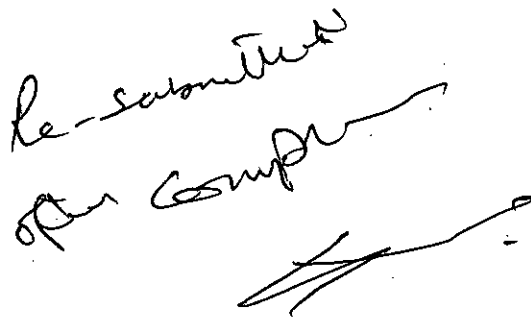 Re-submitted
after Comp